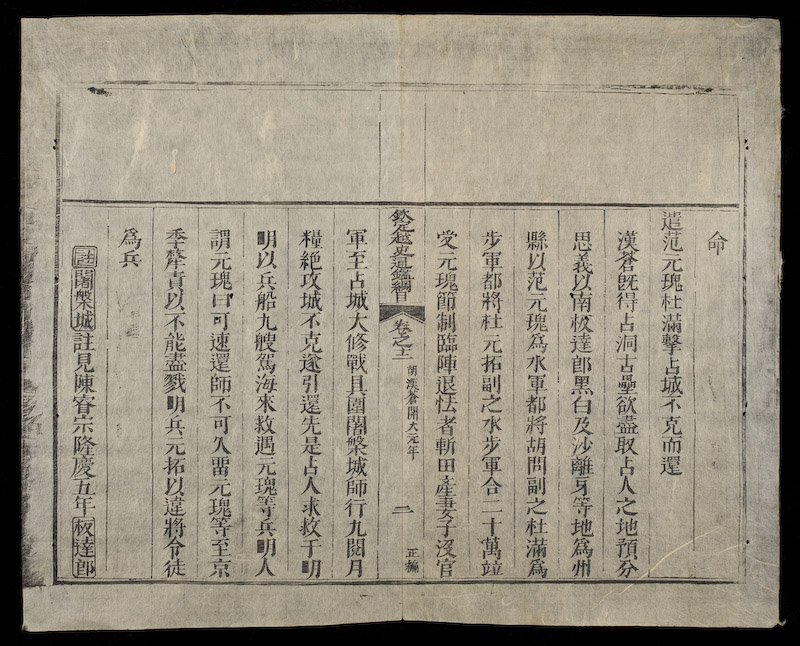 命
遣范元瑰杜滿擊占城不克而還
漢蒼旣得占洞古壘欲盡取占人之地預分
思義以南板達郎黑白及沙離牙等地爲州
縣以范元瑰爲水軍都將胡問副之杜滿爲
步軍都將杜元拓副之水步軍合二十萬竝
受元瑰節制臨陣退怯者斬田產妻子沒官
欽定越史通鑑綱目 卷之十二 胡漢蒼開大元年 二 正編
軍至占城大修戰具圍闍槃城師行九閱月
糧絶攻城不克遂引還先是占人求救于明
明以兵船九艘駕海來救遇元瑰等兵明人
謂元瑰曰可速還師不可久畱元瑰等至京
季犛責以不能盡戮明兵元拓以違將令徒
爲兵
註闍槃城註見陳睿宗隆慶五年板達郎